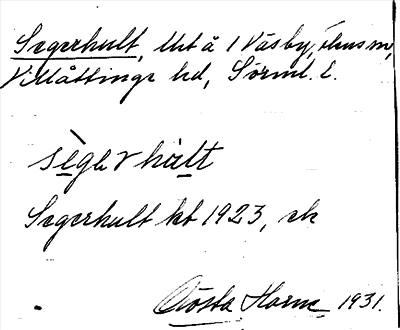 Segerhult, Utt å 1 Väsby, Öhus sn,
Villåttinge hd, Sörml. l.
sègərhùlt
Segerhult kt 1923, ek
Gösta Harne 1931.